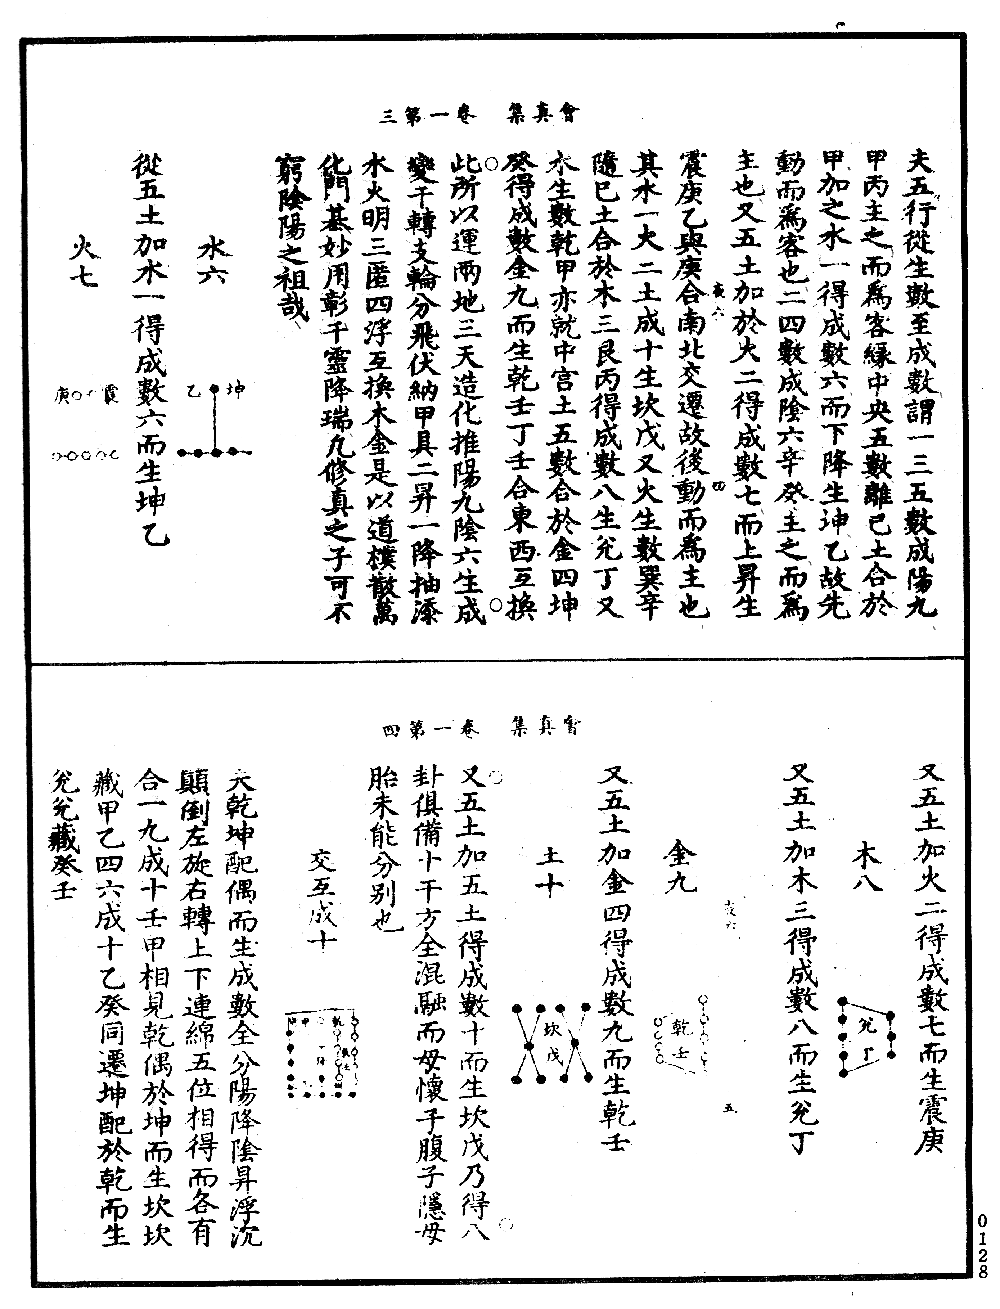 會真集　卷一第三
夫五行從生數至成數謂一三五數成陽九
甲丙主之而爲客緣中央五數離已土合於
甲加之水一得成數六而下降生坤乙故先
動而爲客也二四數成陰六辛癸主之而爲
主也又五土加於火二得成數七而上昇生
震庚乙與庚合南北交遷故後動而爲主也
其水一火二土成十生坎戊又火生數巽辛
隨巳土合於木三艮丙得成數八生兊丁又
水生數乾甲亦就中宫土五數合於金四坤
癸得成數金九而生乾壬丁壬合東西互換
此所以運两地三天造化推陽九陰六生成
變干轉支輪分飛伏納甲具二昇一降抽添
水火明三匿四浮互換木金是以道樸散萬
化門基妙用彰千靈降瑞凢修真之子可不
窮陰陽之祖哉
水六
坤
乙
從五土加水一得成數六而生坤乙
火七
震
庚
會真集　卷一第四
又五土加火二得成數七而生震庚
木八
兊
丁
又五土加木三得成數八而生兊丁
金九
乾
壬
又五土加金四得成數九而生乾壬
土十
坎
戊
又五土加五土得成數十而生坎戊乃得八
卦俱備十干方全混融而母懷子腹子隱母
胎未能分别也
交互成十
夫乾坤配偶而生成數全分陽降陰昇浮沉
顛倒左旋右轉上下連綿五位相得而各有
合一九成十壬甲相見乾偶於坤而生坎坎
藏甲乙四六成十乙癸同遷坤配於乾而生
兊兊藏癸壬
0128